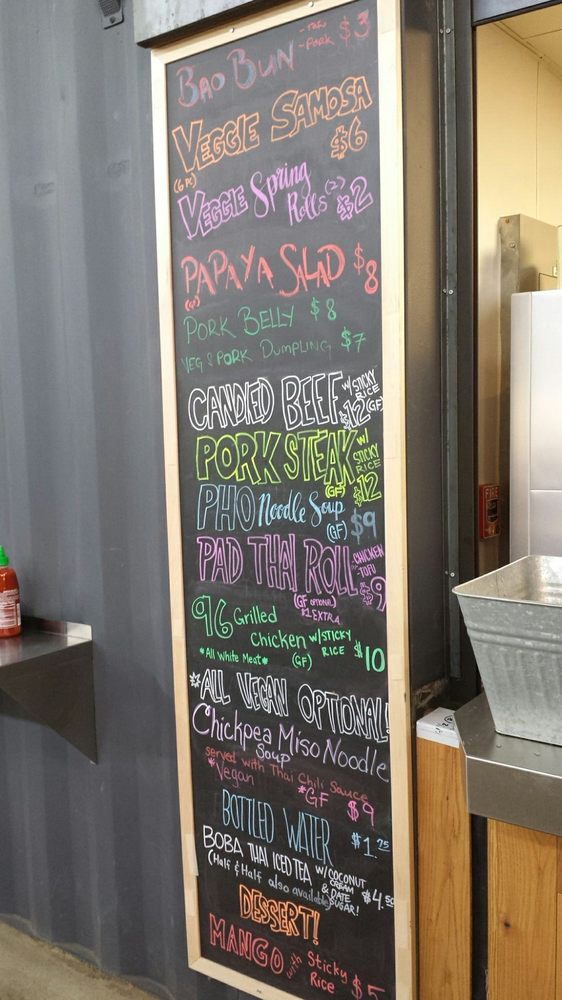 BAO BUN - TOFU - PORK $3
VEGGIE SAMOSA
(6 PC) $6
VEGGIE Spring Rolls (2) $2
PAPAYA SALAD $8
PORK BELLY $8
VEG & PORK DUMPLING $7
CANDIED BEEF W/ STICKY RICE $12 (GF)
PORK STEAK W/ STICKY RICE (GF) $12
PHO Noodle Soup (GF) $9
PAD THAI ROLL - CHICKEN - TOFU $9
(GF OPTIONAL) $1 EXTRA
96 Grilled
Chicken W/ STICKY RICE $10
*All White Meat* (GF)
*ALL VEGAN OPTIONAL!
Chickpea Miso Noodle
Soup
served with Thai Chili Sauce
*Vegan *GF $9
BOTTLED WATER $1.25
BOBA THAI ICED TEA W/ COCONUT CREAM & DATE SUGAR! $4.50
(Half & Half also available)
DESSERT!
MANGO with Sticky Rice $5
FIRE